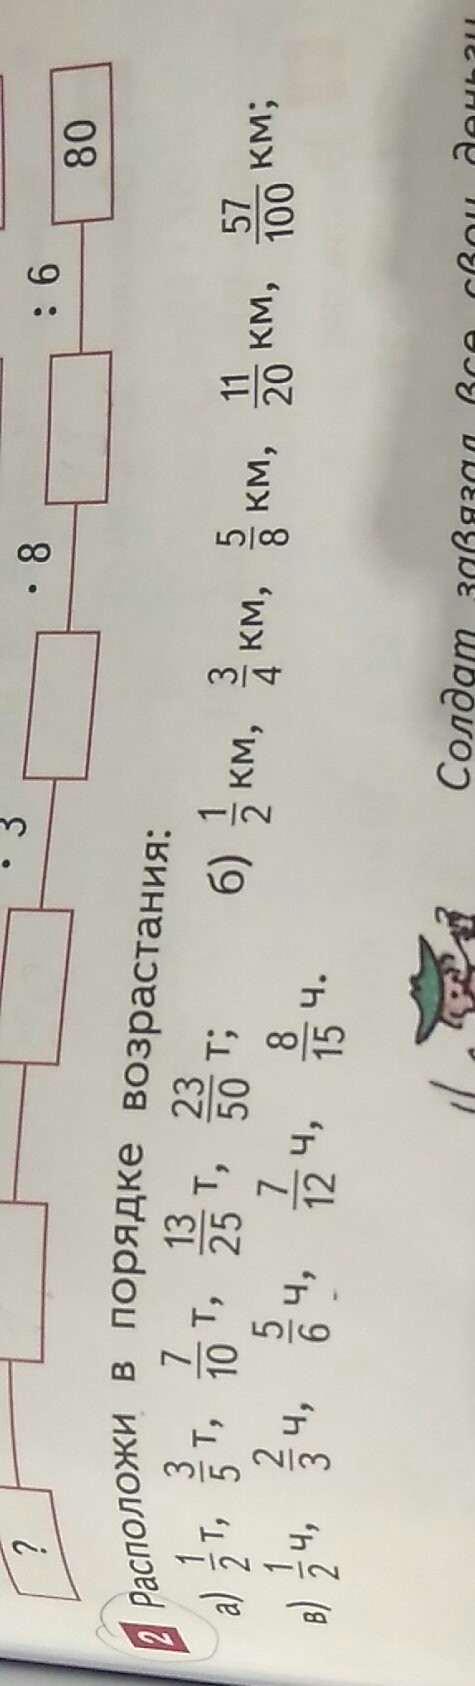 ? · 3 · 8 : 6 80
2 Расположи в порядке возрастания:
а) 1/2 т, 3/5 т, 7/10 т, 13/25 т, 23/50 т; б) 1/2 км, 3/4 км, 5/8 км, 11/20 км, 57/100 км;
в) 1/2 ч, 2/3 ч, 5/6 ч, 7/12 ч, 8/15 ч.
Солдат завязал все свои деньги